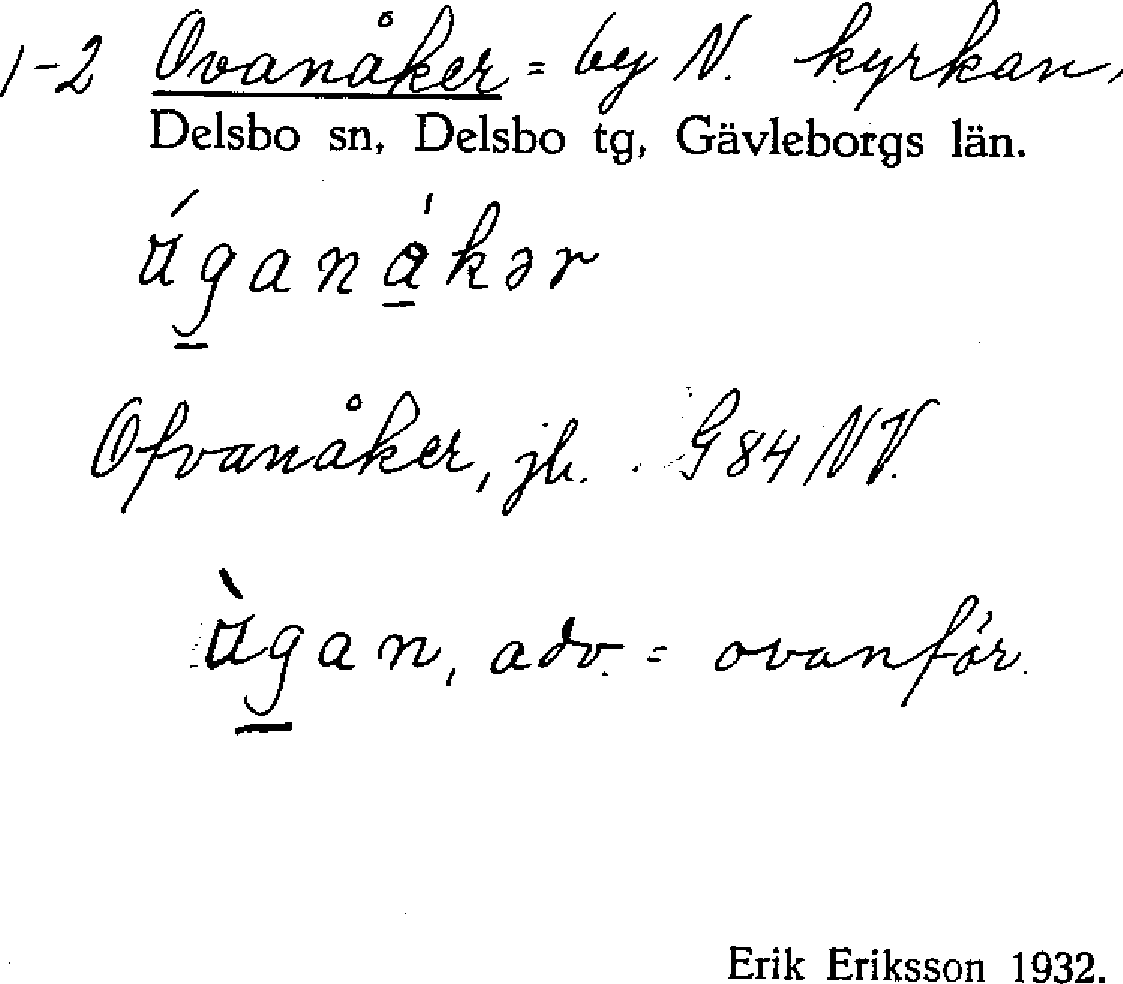 1-2 Ovanåker = by N. kyrkan,
Delsbo sn, Delsbo tg, Gävleborgs län.
ú̶g̲anǻ̲kər
Ofvanåker, jb. G84 NV.
ù̶g̲an, adv. = ovanför.
Erik Eriksson 1932.